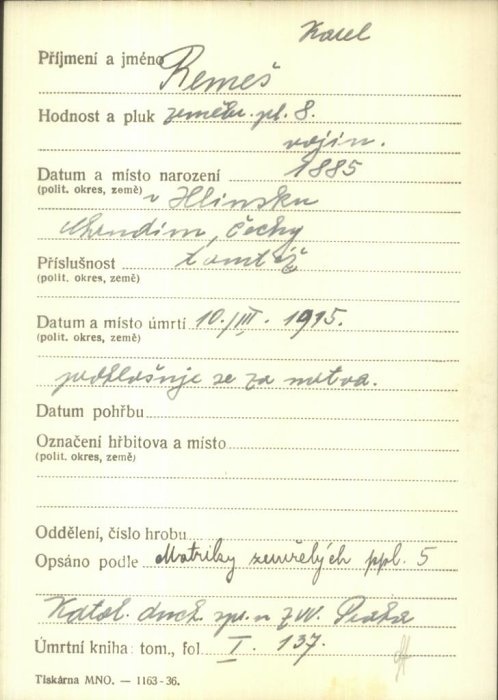 Karel
Příjmení a jméno Remeš
Hodnost a pluk zeměbr. pl. 8.
vojín.
Datum a místo narození 1885
(polit. okres, země) v Hlinsku
Chrudim, Čechy
Příslušnost tamtéž
(polit. okres, země)
Datum a místo úmrtí 10./III. 1915.
(polit. okres, země)
prohlašuje se za mrtva.
Datum pohřbu
Označení hřbitova a místo
(polit. okres, země)
Oddělení, číslo hrobu
Opsáno podle Matriky zemřelých ppl. 5
Katol. duch. spr. u ZVV. Praha
Úmrtní kniha: tom., fol. I. 137.
Tiskárna MNO. — 1163-36.